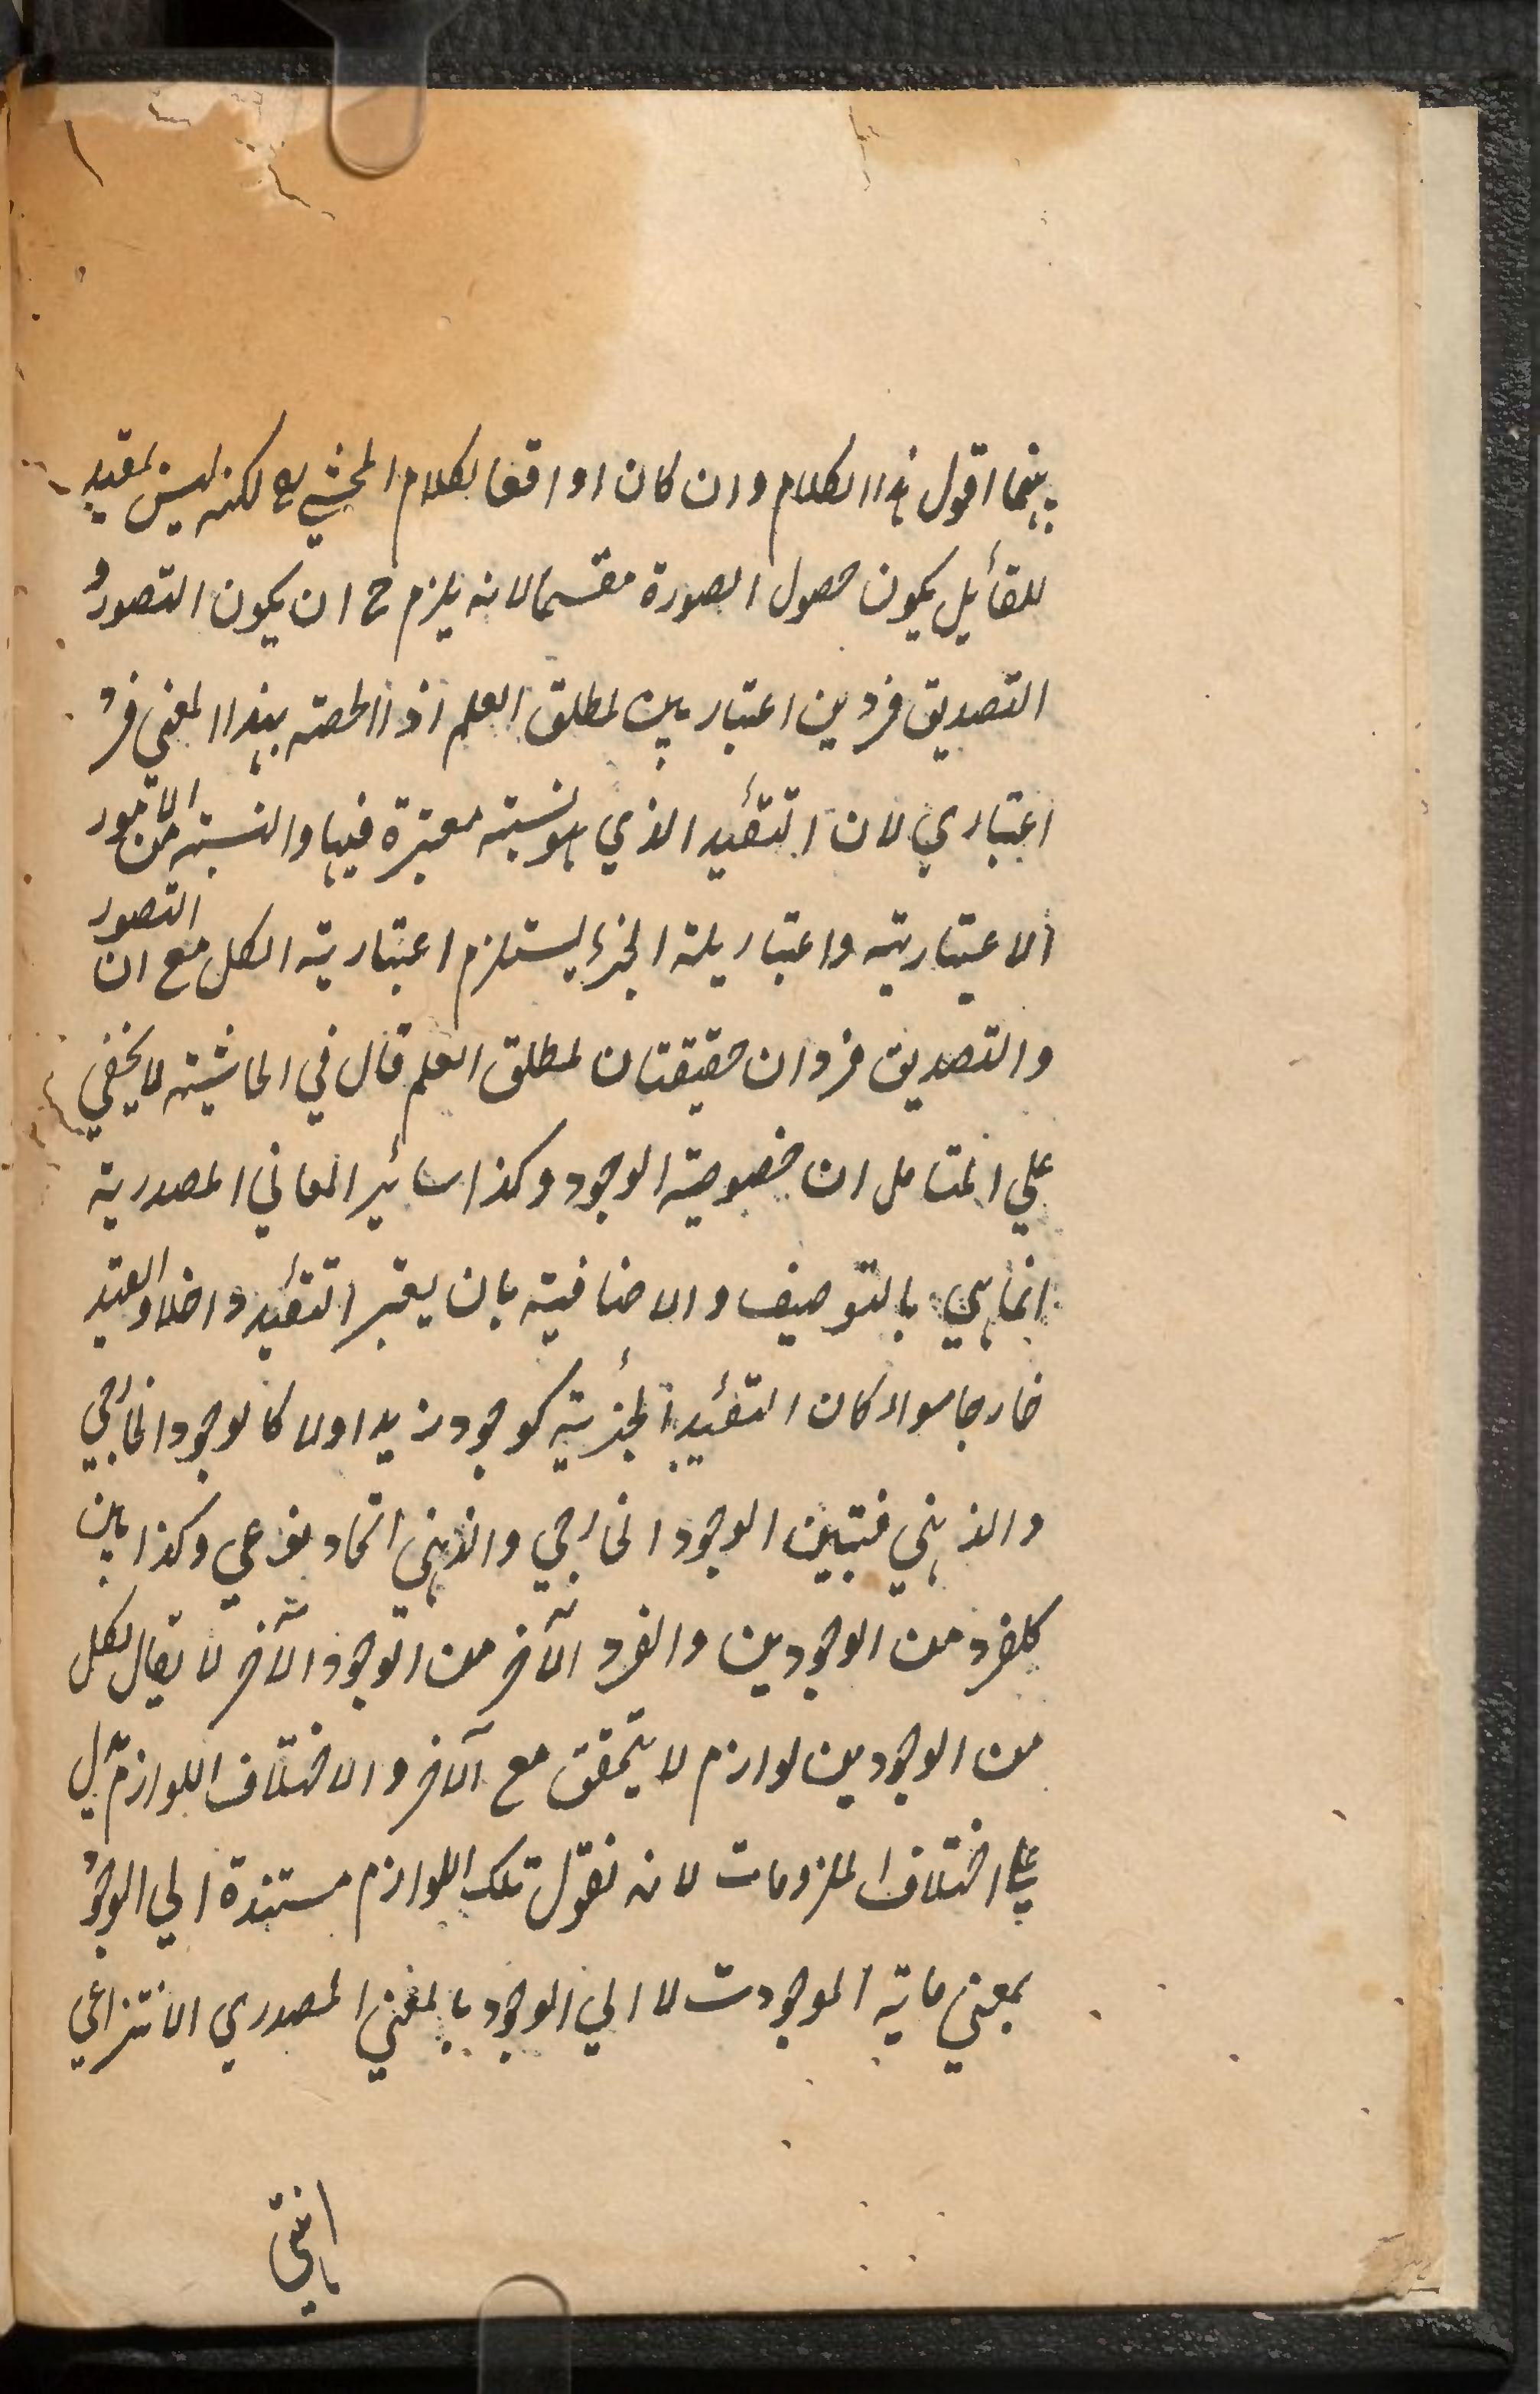 بينهما اقول هذا الكلام وان كان اوافقا لكلام المحشي رح لكنه ليس بمفيد
للقائل يكون حصول الصورة مقسما لانه يلزم ح ان يكون التصور و
التصديق فردين اعتباريين لمطلق العلم اذ الحصته بهذا المعني فرد
اعتباري لان التقئيد الذي هو نسبته معتبرة فيها والنسبته من الامور
الاعتباريته واعتباريته الجزء يستلزم اعتباريته الكل مع ان التصور
والتصديق فردان حقيقتان لمطلق العلم قال في الحاشيته لا يخفي
علي المتامل ان خصوصيته الوجود وكذا سائير المعاني المصدرية
انما هي بالتوصيف والاضافيته بان يعتبر التقئيد داخلا والقيد
خارجا سواء كان التقئيد بالجزئيته كوجود زيد اولا كالوجود الخارجي
والذهني فتبين الوجود الخارجي والذهني اتحاد نوعي وكذا بين
كلفرد من الوجودين والفرد الآخر من الوجود الآخر لا يقال لكل
من الوجودين لوازم لا يتحقق مع الآخر والاختلاف اللوازم يدل
علي اختلاف الملزومات لانه نقول تلك اللوازم مستندة الي الوجود
بمعني مابه الموجودت لا الي الوجود بالمعني المصدري الانتزاعي
انتهي